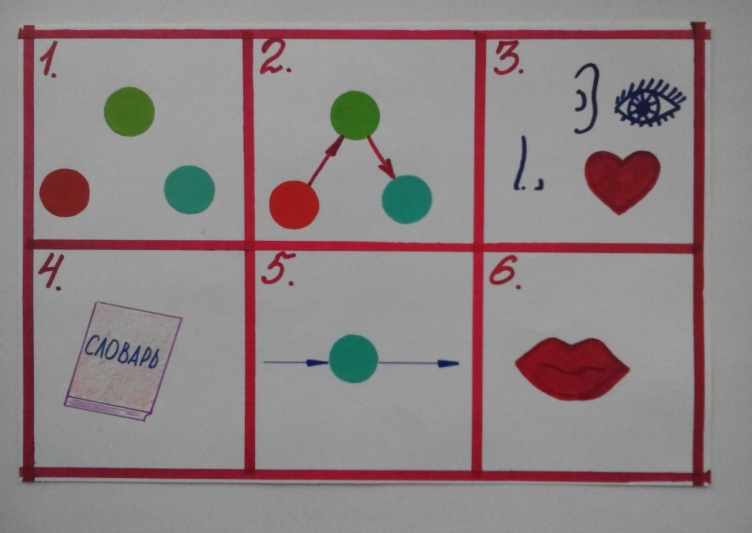 1.
2.
3.
4.
СЛОВАРЬ
5.
6.